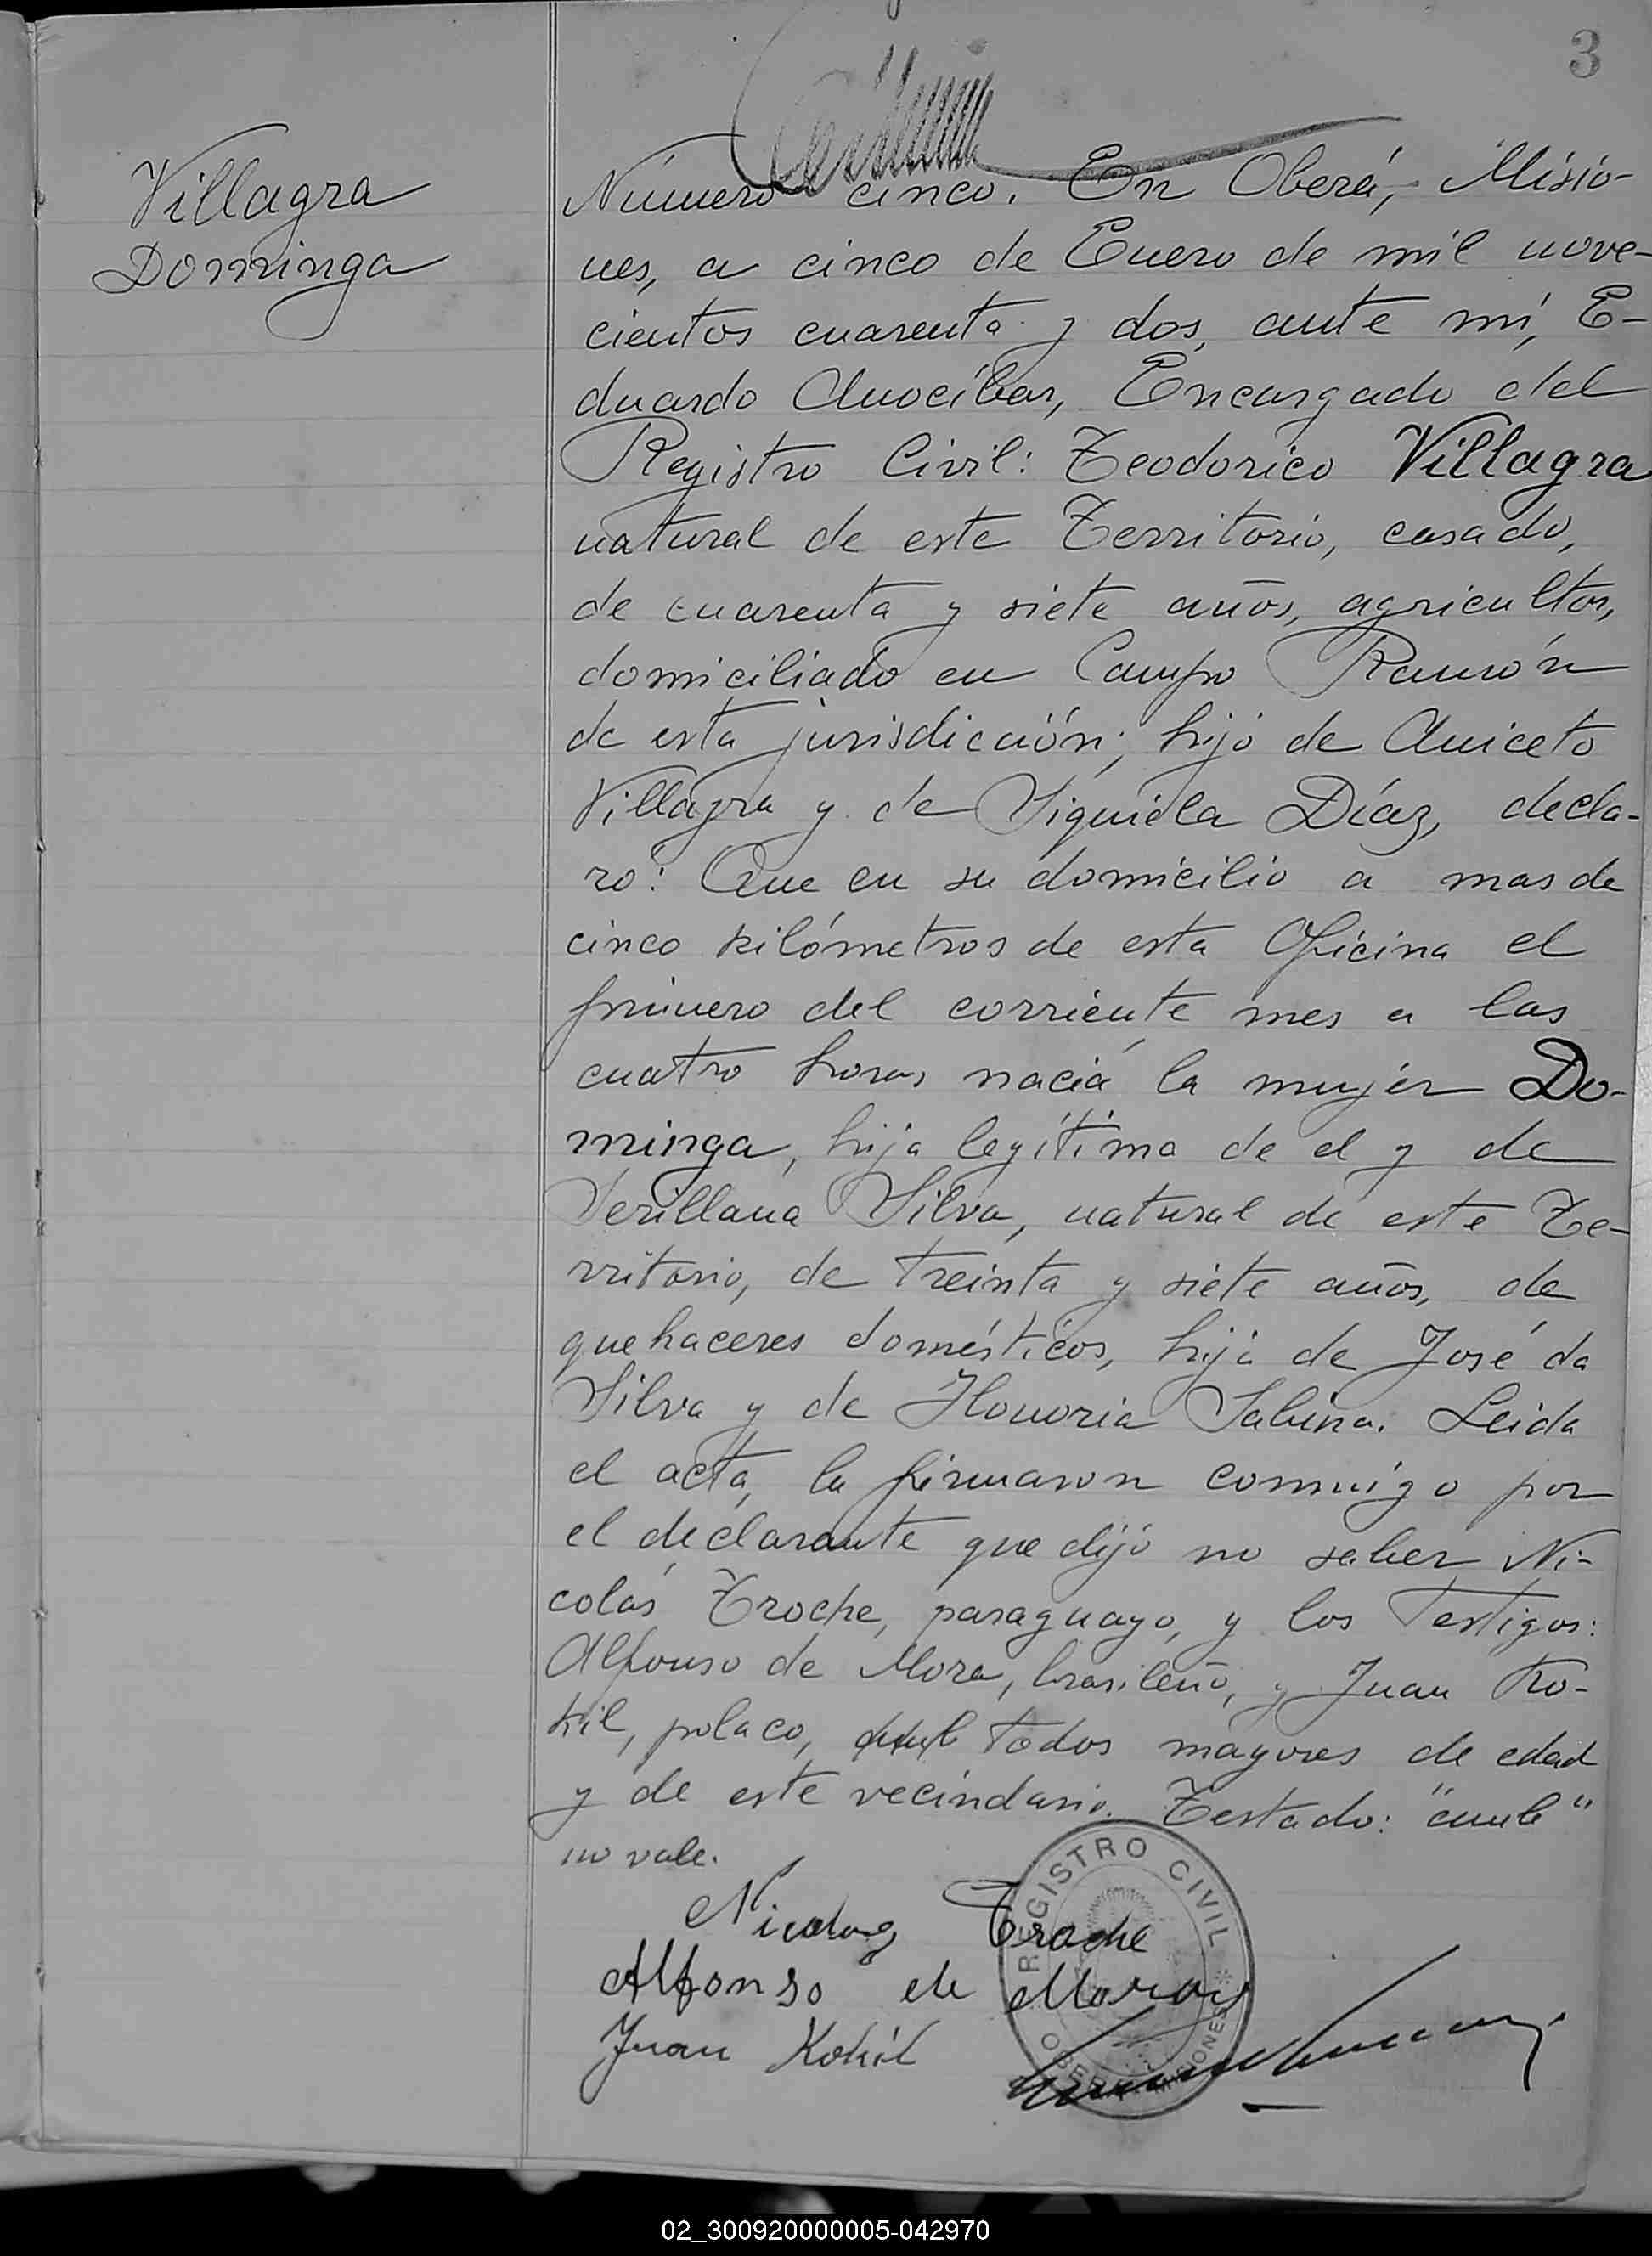 3
Villagra
Dominga
Número cinco. En Oberá, Misio-
nes, a cinco de Enero de mil nove-
cientos cuarenta y dos, ante mí, E-
duardo Anocíbar, Encargado del
Registro Civil: Teodorico Villagra
natural de este Territorio, casado,
de cuarenta y siete años, agricultor,
domiciliado en Campo Ramón
de esta jurisdicción; hijo de Aniceto
Villagra y de Siquiela Díaz, decla-
ro: Que en su domicilio a mas de
cinco kilómetros de esta Oficina el
primero del corriente mes a las
cuatro horas nació la mujer Do-
minga, hija legítima de el y de
Serillana Silva, natural de este Te-
rritorio, de treinta y siete años, de
quehaceres domésticos, hija de José da
Silva y de Honoria Sabina. Leida
el acta, la firmaron conmigo por
el declarante que dijo no saber Ni-
colás Troche, paraguayo, y los testigos:
Alfonso de Mora, brasileño, y Juan Ko-
kil, polaco, todos mayores de edad
y de este vecindario. Testado: "
no vale.
Nicolas Troche
Alfonso de Moray
Juan Kokil
REGISTRO CIVIL
OBERÁ MISIONES
02_300920000005-042970